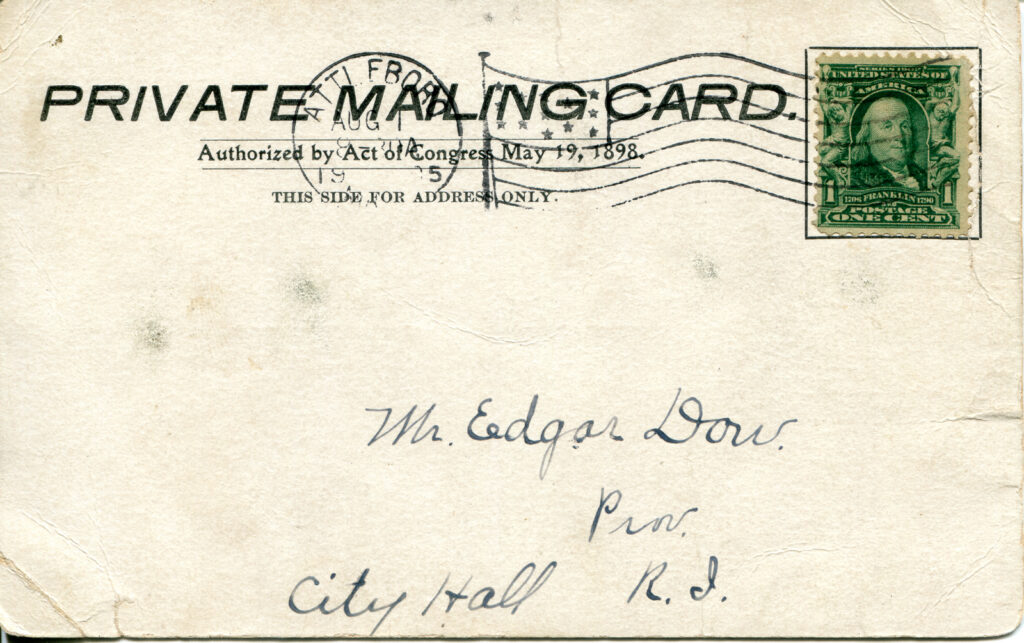 PRIVATE MAILING CARD.
Authorized by Act of Congress May 19, 1898.
THIS SIDE FOR ADDRESS ONLY.
ATTLEBORO
AUG 1
8
19 05
SERIES 1902
UNITED STATES OF
AMERICA
1 1
1706 FRANKLIN 1790
POSTAGE
ONE CENT
Mr. Edgar Dow.
Prov.
City Hall R. I.